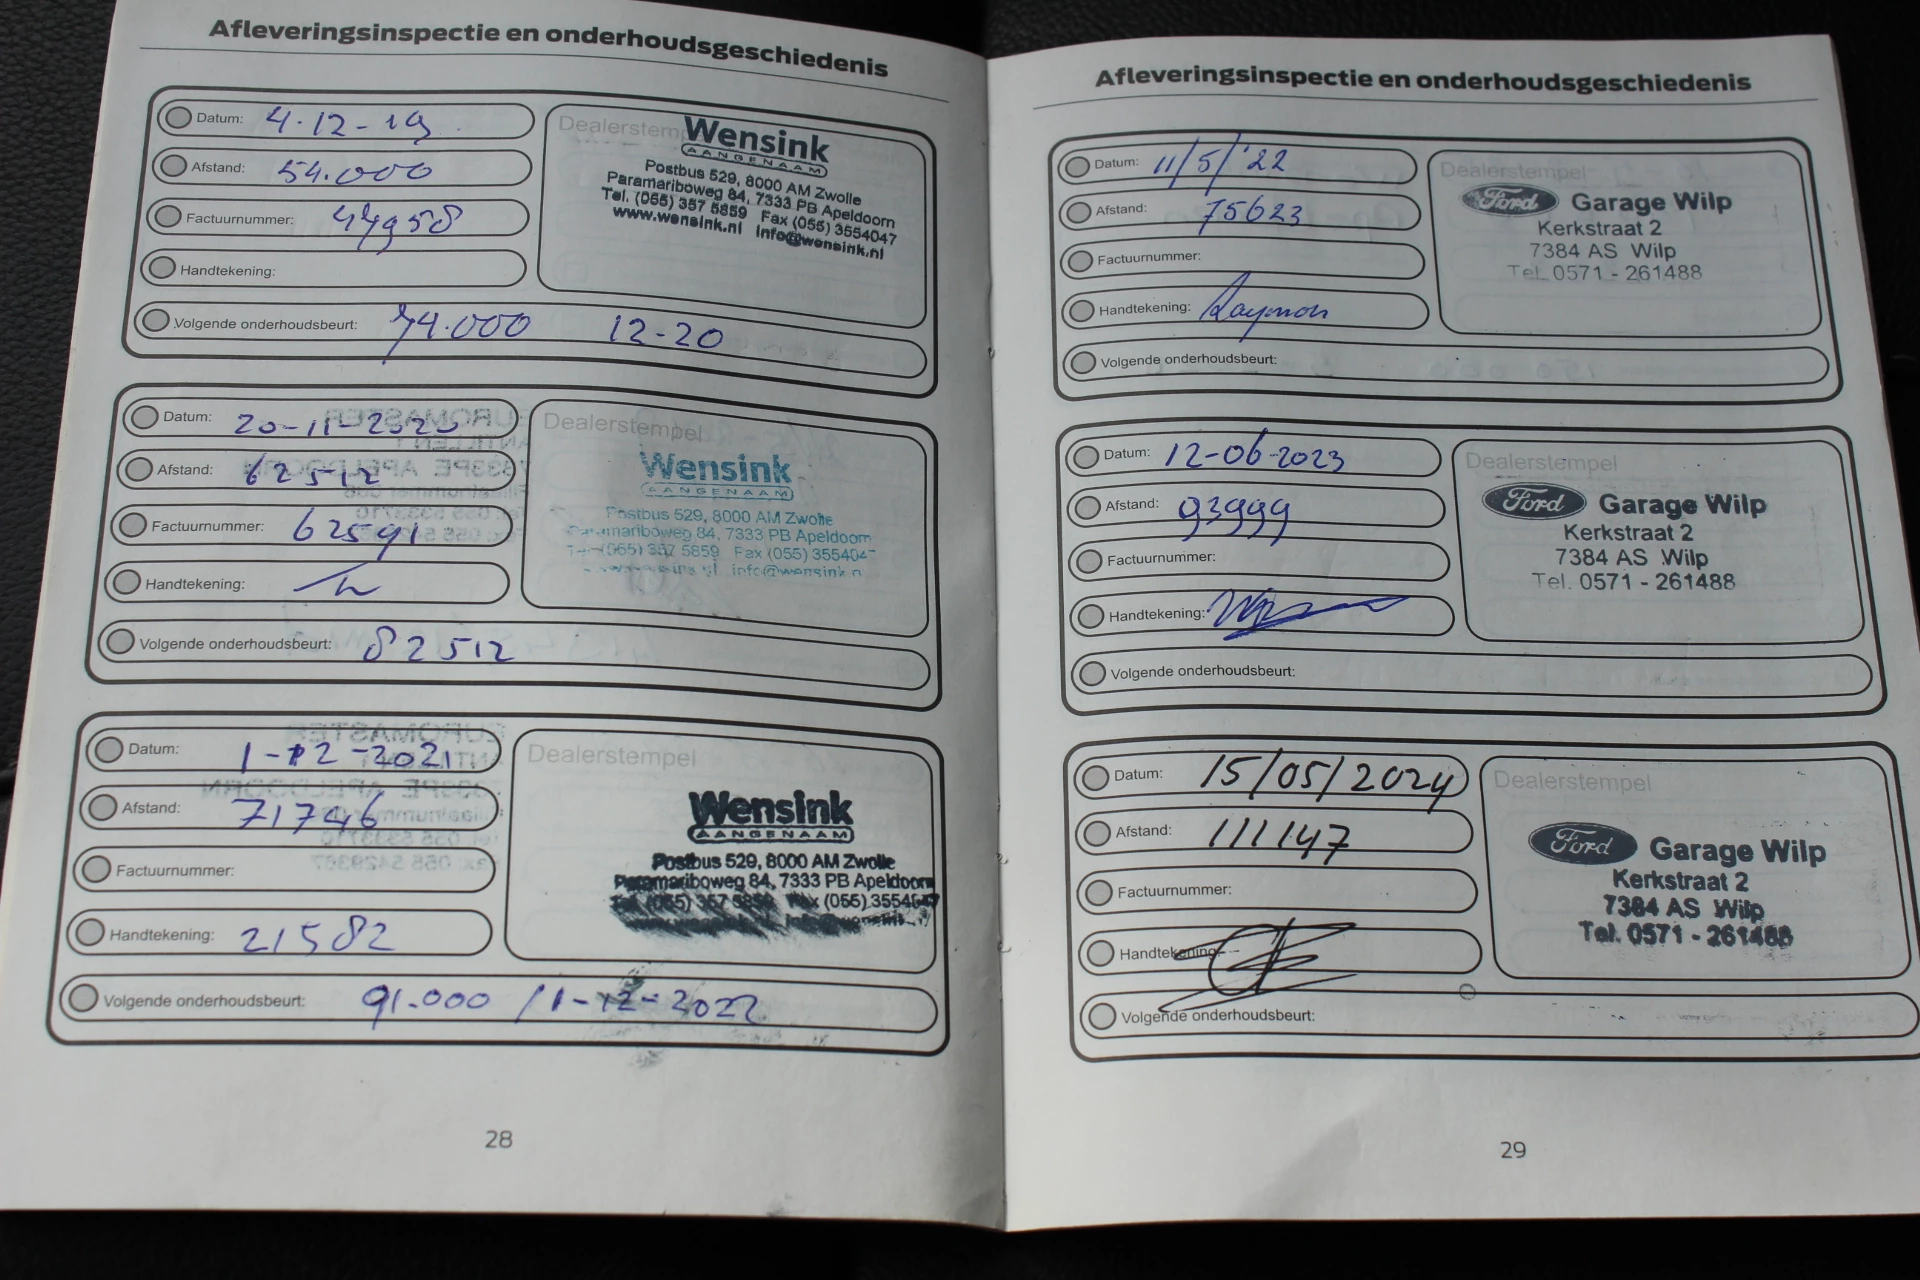 Afleveringsinspectie en onderhoudsgeschiedenis
Datum: 4-12-19
Afstand: 54.000
Factuurnummer:
Handtekening:
Volgende onderhoudsbeurt: 74.000 12-20
Dealerstempel
Wensink
AANGENAAM
Postbus 529, 8000 AM Zwolle
Paramariboweg 84, 7333 PB Apeldoorn
Tel. (055) 357 5859 Fax (055) 3554047
www.wensink.nl info@wensink.nl
Datum: 20-11-2020
Afstand: 62512
Factuurnummer: 62591
Handtekening:
Volgende onderhoudsbeurt: 82512
Dealerstempel
Wensink
AANGENAAM
Postbus 529, 8000 AM Zwolle
Paramariboweg 84, 7333 PB Apeldoorn
Tel. (055) 357 5859 Fax (055) 3554047
info@wensink.n
Datum: 1-12-2021
Afstand: 71746
Factuurnummer:
Handtekening: 21582
Volgende onderhoudsbeurt: 91.000 / 1-12-2022
Dealerstempel
Wensink
AANGENAAM
Postbus 529, 8000 AM Zwolle
Paramariboweg 84, 7333 PB Apeldoorn
Tel. (055) 357 5859 Fax (055) 3554047
28
Afleveringsinspectie en onderhoudsgeschiedenis
Datum: 11/5/'22
Afstand: 75623
Factuurnummer:
Handtekening: Raymon
Volgende onderhoudsbeurt:
Dealerstempel
Ford Garage Wilp
Kerkstraat 2
7384 AS Wilp
Tel. 0571 - 261488
Datum: 12-06-2023
Afstand: 93999
Factuurnummer:
Handtekening:
Volgende onderhoudsbeurt:
Dealerstempel
Ford Garage Wilp
Kerkstraat 2
7384 AS Wilp
Tel. 0571 - 261488
Datum: 15/05/2024
Afstand: 111147
Factuurnummer:
Handtekening:
Volgende onderhoudsbeurt:
Dealerstempel
Ford Garage Wilp
Kerkstraat 2
7384 AS Wilp
Tel. 0571 - 261488
29